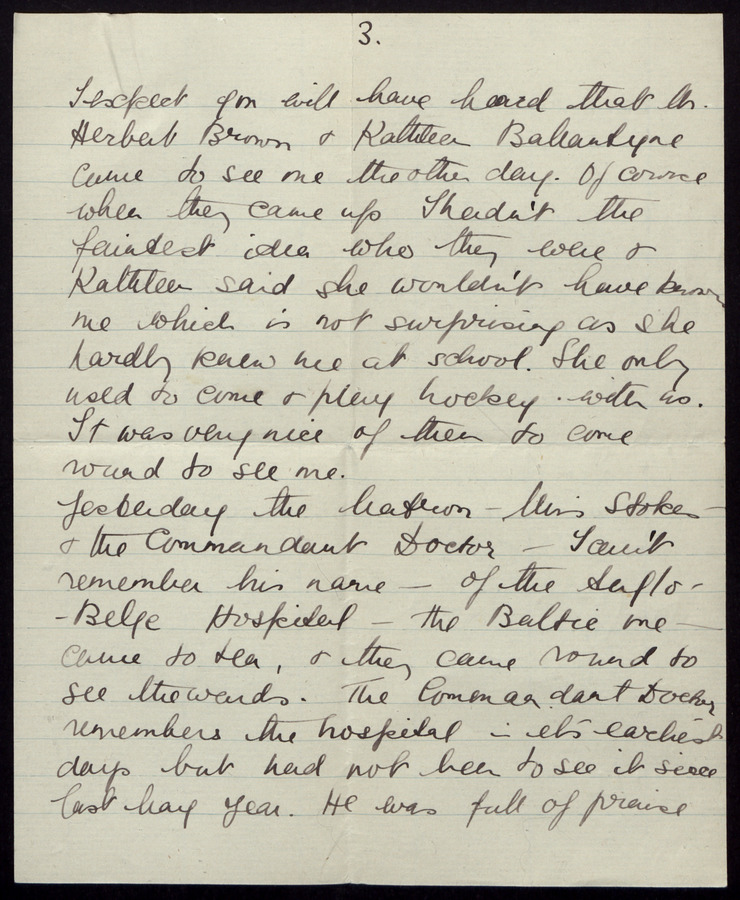 3.
I expect you will have heard that Mr.
Herbert Brown & Kathleen Ballantyne
came to see me the other day. Of course
when they came up I hadn't the
faintest idea who they were &
Kathleen said she wouldn't have known
me which is not surprising as she
hardly knew me at school. She only
used to come & play hockey with us.
It was very nice of them to come
round to see me.
Yesterday the Matron - Miss Stokes -
& the Commandant Doctor - I can't
remember his name - of the Anglo-
-Belge Hospital - the one -
came to tea, & they came round to
see the wards. The Commandant Doctor
remembers the hospital in its earliest
days but had not been to see it since
last May year. He was full of praise